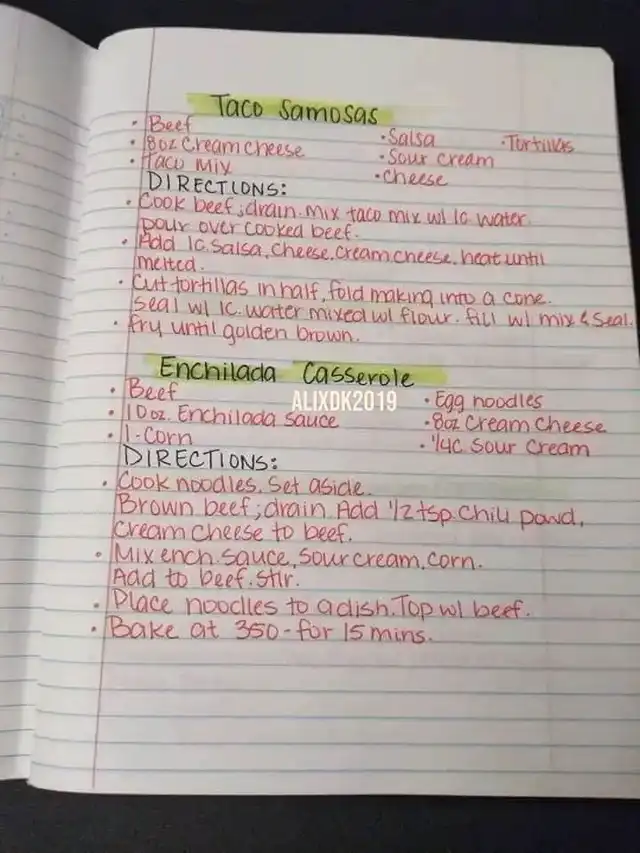 Taco Samosas
• Beef
• 8oz Cream Cheese
• Taco Mix
• Salsa
• Sour cream
• Cheese
• Tortillas
DIRECTIONS:
• Cook beef; drain. Mix taco mix w/ 1c. water.
pour over cooked beef.
• Add 1c. salsa, cheese, cream cheese. heat until
melted.
• Cut tortillas in half, fold making into a cone.
Seal w/ 1c. water mixed w/ flour. fill w/ mix & seal.
• fry until golden brown.
Enchilada Casserole
ALIXDK2019
• Beef
• 10oz. Enchilada sauce
• 1-Corn
• Egg noodles
• 8oz Cream Cheese
• 1/4c Sour Cream
DIRECTIONS:
• Cook noodles. Set aside.
Brown beef; drain. Add 1/2 tsp. Chili powd,
Cream cheese to beef.
• Mix ench. sauce, sour cream, corn.
Add to beef. Stir.
• Place noodles to a dish. Top w/ beef.
• Bake at 350 - for 15 mins.